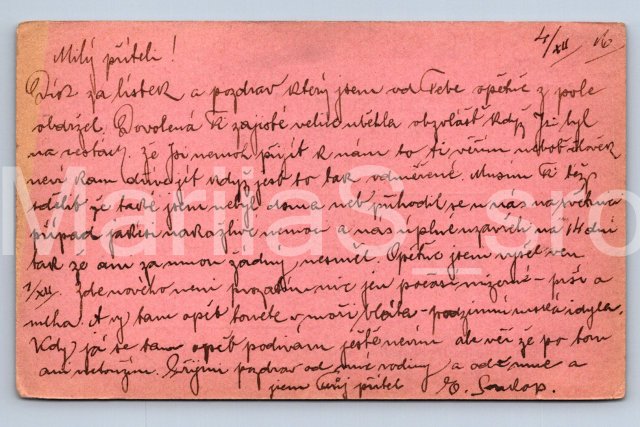 4/XII 16
Milý příteli!
Dík za lístek a pozdrav který jsem od Tebe opětně z pole
obdržel. Dovolená Ti zajisté velice utěkla obzvlášť když Jsi byl
na cestách. Že Jsi nemoh přijít k nám to Ti věřím neboť člověk
neví kam dříve jít když jest to tak odměřené. Musím Ti též
sdělit že také jsem nebyl doma neb přihodil se u nás na
případ jakési nakažlivé nemoce a nás úplně uzavřeli na 14 dní
tak že ani za mnou žádný nesměl. Opětně jsem vyšel ven
1/XII. Zde nového není prozatím nic jen počasí mizerné - prší a
mlha. A vy tam opět tonete v moři bláta - podzimní idyla.
Kdy já se tam opět podívám ještě nevím ale věř že po tom
ani netoužím. Přijmi pozdrav od mé rodiny a ode mne a
jsem Tvůj přítel
MariaS_sro